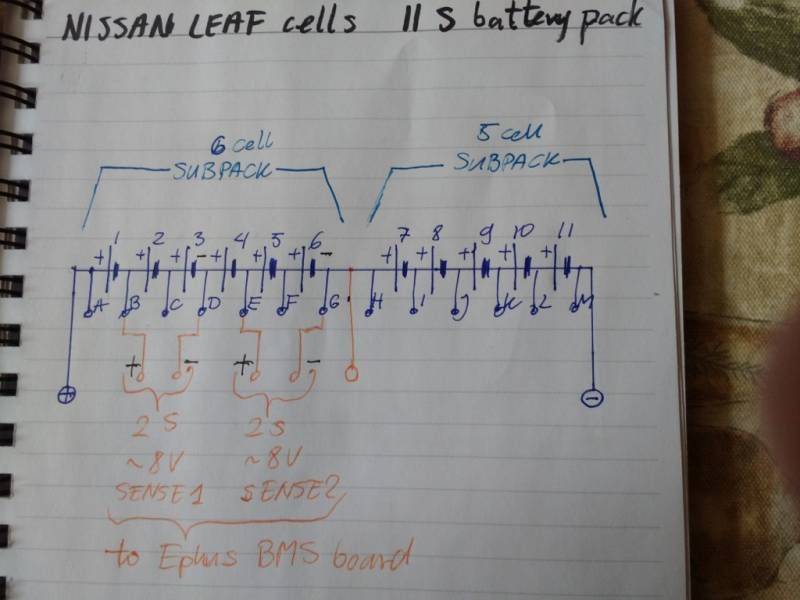 NISSAN LEAF cells 11 S battery pack
6 cell
SUBPACK
5 cell
SUBPACK
1 2 3 4 5 6 7 8 9 10 11
+ + + - + + + - + + + + +
A B C D E F G H I J K L M
+ - + -
+ -
2 S 2 S
~8V ~8V
SENSE1 SENSE2
to Ephus BMS board